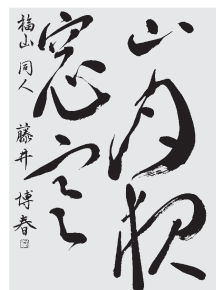 山月夜
窓
福山 同人 藤井 博春